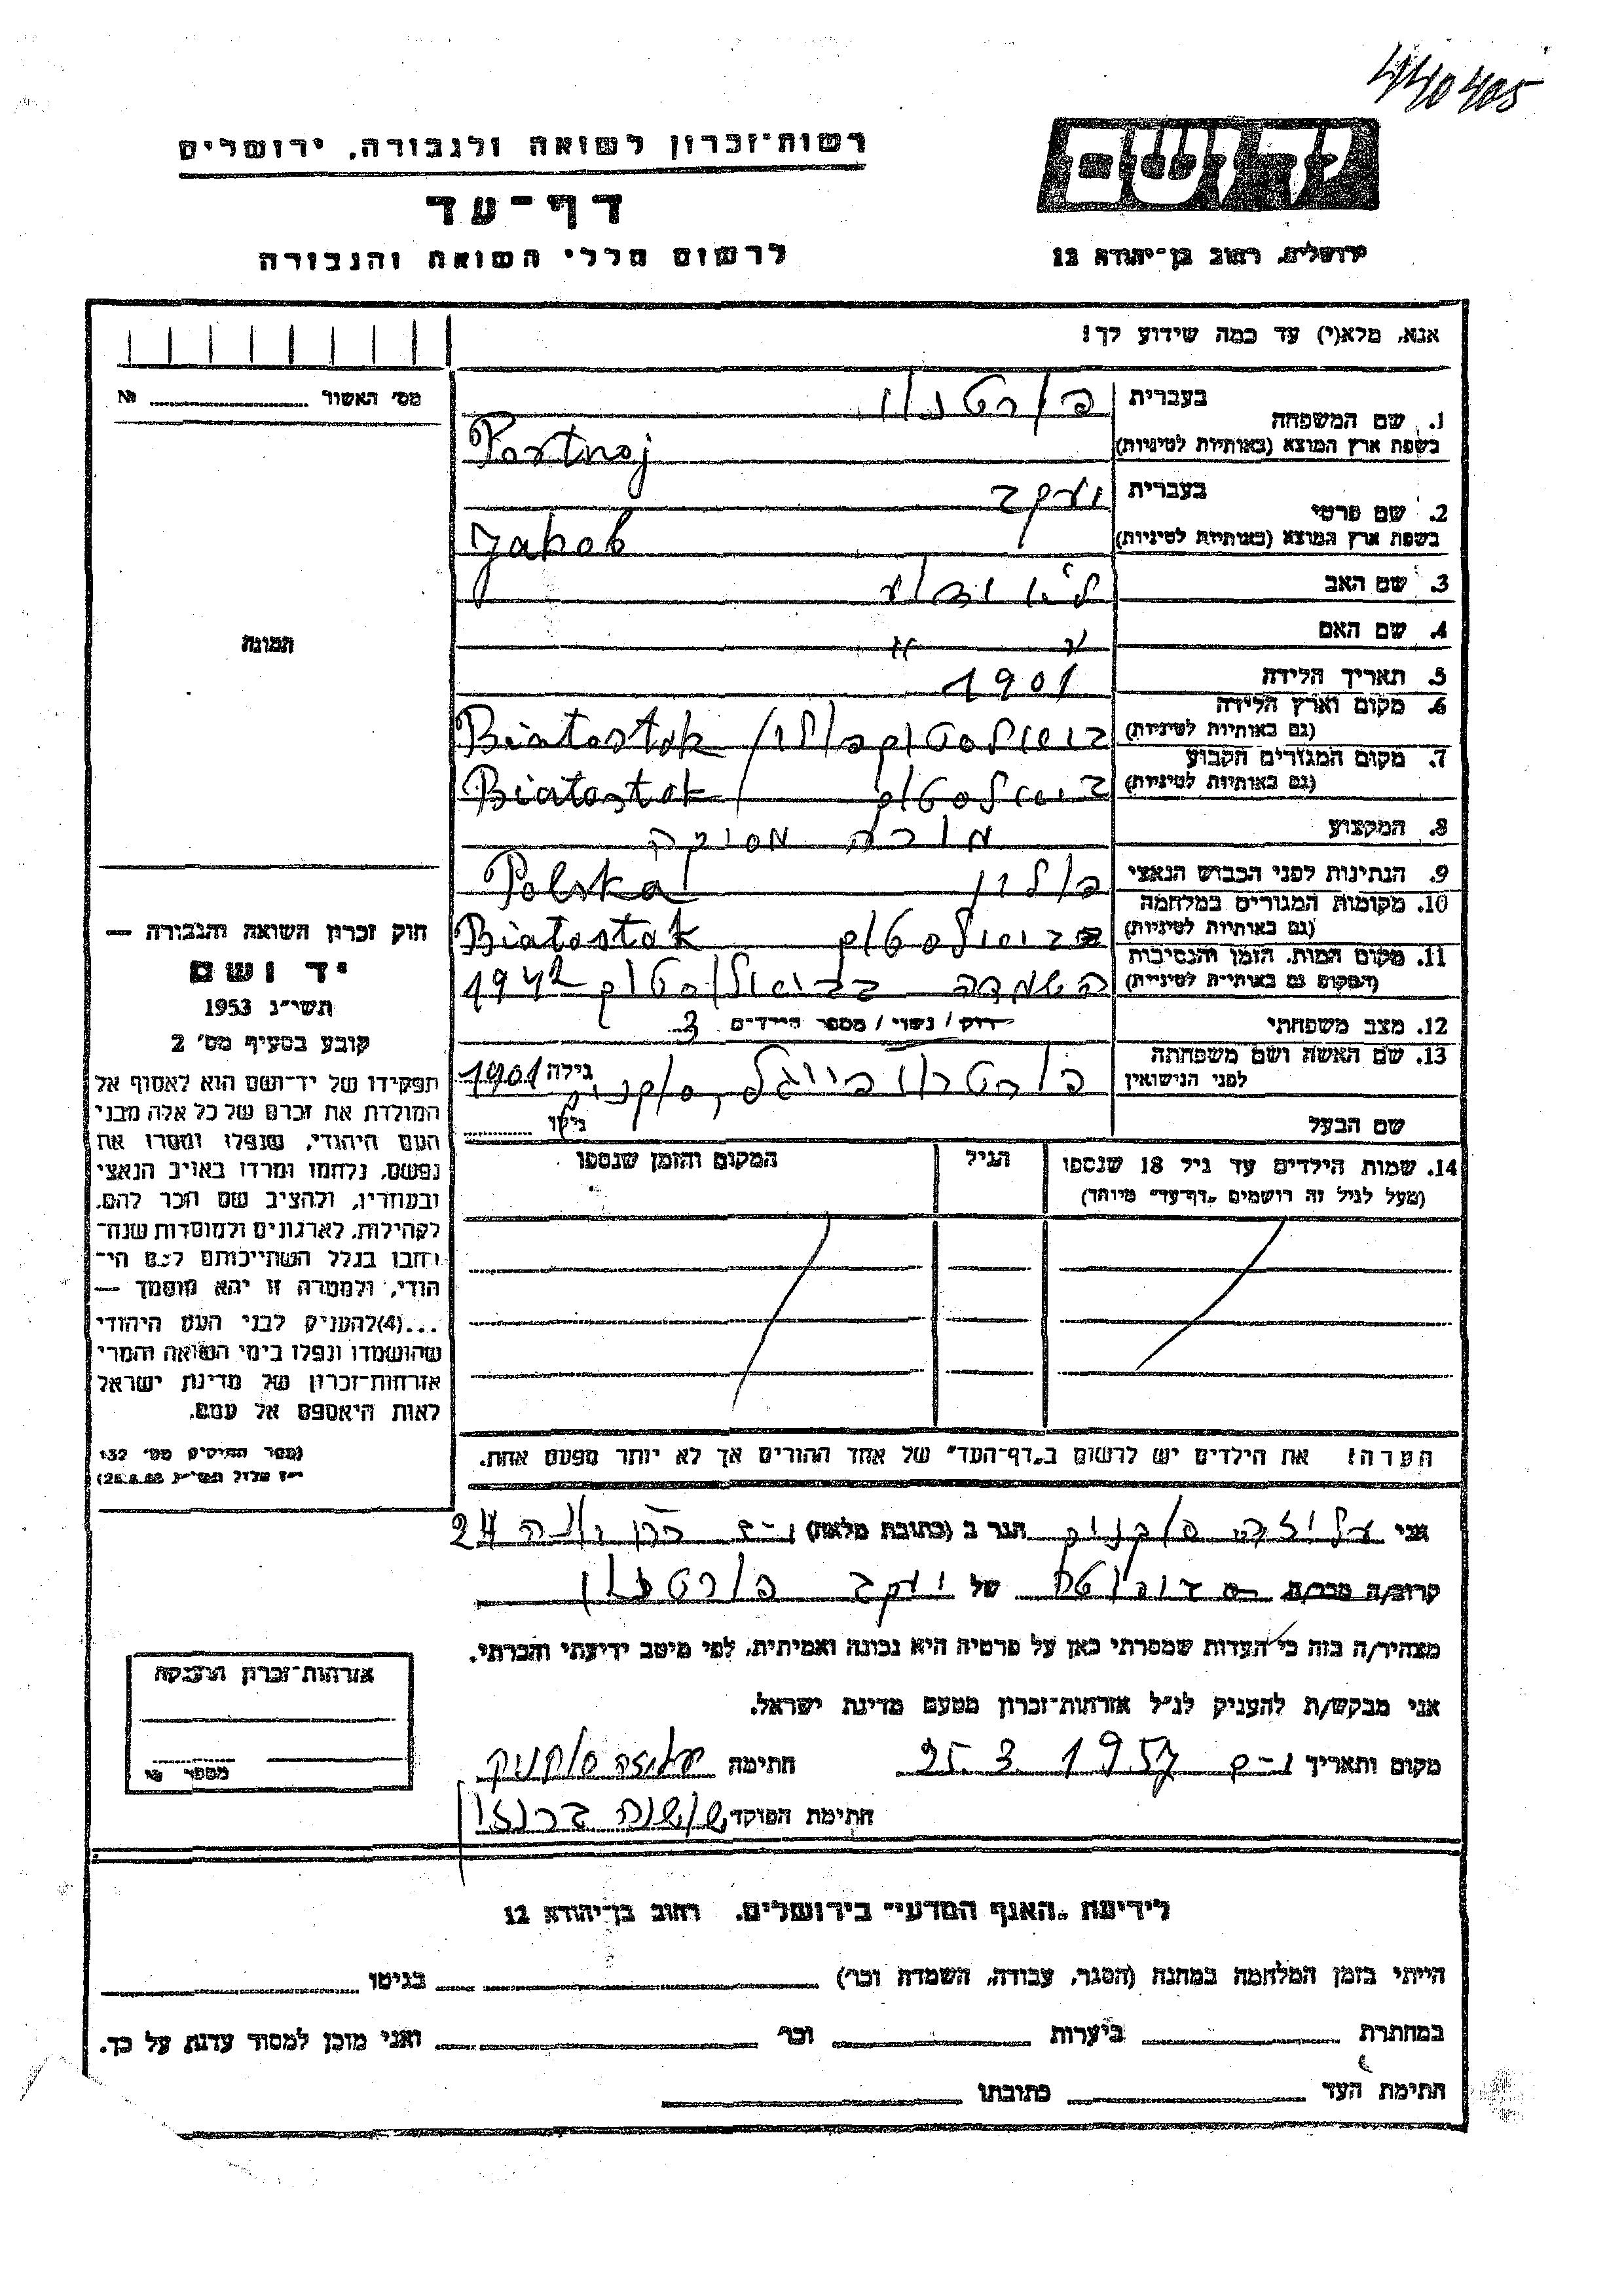 440405
רשות־זכרון לשואה ולגבורה, ירושלים
יד ושם
דף־עד
לרשום חללי השואה והגבורה
ירושלים, רחוב בן־יהודה 12
אנא, מלא(י) עד כמה שידוע לך!
מס' האשור № 
1. שם המשפחה בעברית פורטנוי
בשפת ארץ המוצא (באותיות לטיניות) Portnoj
2. שם פרטי בעברית יעקב
בשפת ארץ המוצא (באותיות לטיניות) Jakob
3. שם האב לא ידוע
4. שם האם " "
5. תאריך הלידה 1901
6. מקום וארץ הלידה (גם באותיות לטיניות) ביאליסטוק פולין / Białostok
7. מקום המגורים הקבוע (גם באותיות לטיניות) ביאליסטוק / Białostok
8. המקצוע מורה מוסיקה
9. הנתינות לפני הכבוש הנאצי פולין Polska
10. מקומות המגורים במלחמה (גם באותיות לטיניות) ביאליסטוק Białostok
11. מקום המות, הזמן והנסיבות (המקום גם באותיות לטיניות) השמדה בביאליסטוק 1942
12. מצב משפחתי רווק / נשוי / מספר הילדים 3
13. שם האשה ושם משפחתה לפני הנישואין פורטנוי פייגל, גילה 1901
שם הבעל גילו
14. שמות הילדים עד גיל 18 שנספו
(מעל לגיל זה רושמים „דף־עד" מיוחד)
הגיל
המקום והזמן שנספו
הערה! את הילדים יש לרשום ב„דף־העד" של אחד ההורים אך לא יותר מפעם אחת.
התמונה
חוק זכרון השואה והגבורה —
יד ושם
תשי"ג 1953
קובע בסעיף מס' 2
תפקידו של יד־ושם הוא לאסוף אל
המולדת את זכרם של כל אלה מבני
העם היהודי, שנפלו ומסרו את
נפשם, נלחמו ומרדו באויב הנאצי
ובעוזריו, ולהציב שם וזכר להם,
לקהילות, לארגונים ולמוסדות שנח־
רבו בגלל השתייכותם לעם הי־
הודי, ולמטרה זו יהא מוסמך —
...(4)להעניק לבני העם היהודי
שהושמדו ונפלו בימי השואה והמרי
אזרחות־זכרון של מדינת ישראל
לאות היאספם אל עמם.
(ספר החוקים מס' 132
אני עליזה הגר ב (כתובת מלאה) י-ם 24
קרוב/ה מכר/ה של יעקב פורטנוי
מצהיר/ה בזה כי העדות שמסרתי כאן על פרטיה היא נכונה ואמיתית, לפי מיטב ידיעתי והכרתי.
אני מבקש/ת להעניק לנ"ל אזרחות־זכרון מטעם מדינת ישראל.
מקום ותאריך י-ם 25. 3. 1957 חתימה עליזה
חתימת הפוקד שושנה
אזרחות־זכרון הוענקה
מספר №
לידיעת „האגף המדעי" בירושלים, רחוב בן־יהודה 12
הייתי בזמן המלחמה במחנה (הסגר, עבודה, השמדה וכו') בגיטו
במחתרת ביערות וכו' ואני מוכן למסור עדות על כך.
חתימת העד כתובתו